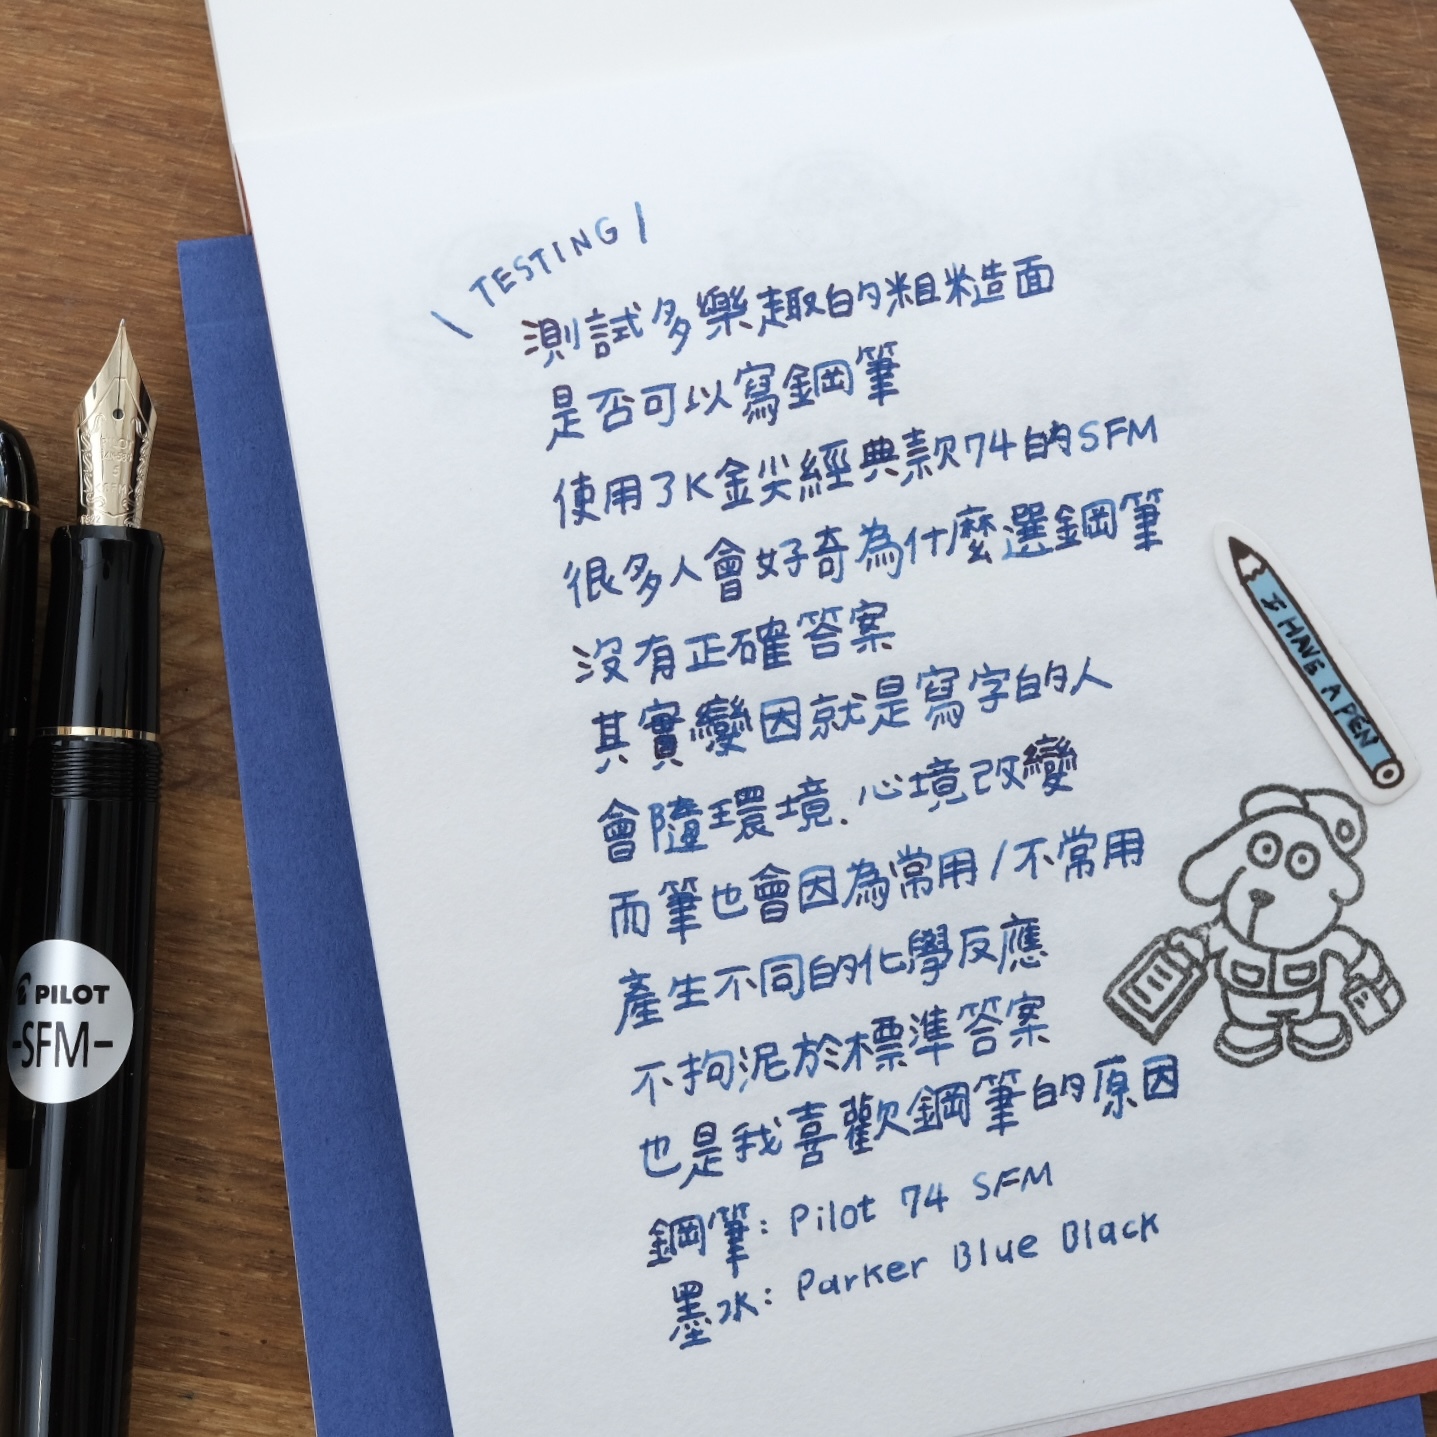 \ TESTING /
測試多樂趣的粗糙面
是否可以寫鋼筆
使用了K金尖經典款74的SFM
很多人會好奇為什麼選鋼筆
沒有正確答案
其實變因就是寫字的人
會隨環境.心境改變
而筆也會因為常用/不常用
產生不同的化學反應
不拘泥於標準答案
也是我喜歡鋼筆的原因
鋼筆：Pilot 74 SFM
墨水：Parker Blue Black
I HAVE A PEN
PILOT
-SFM-